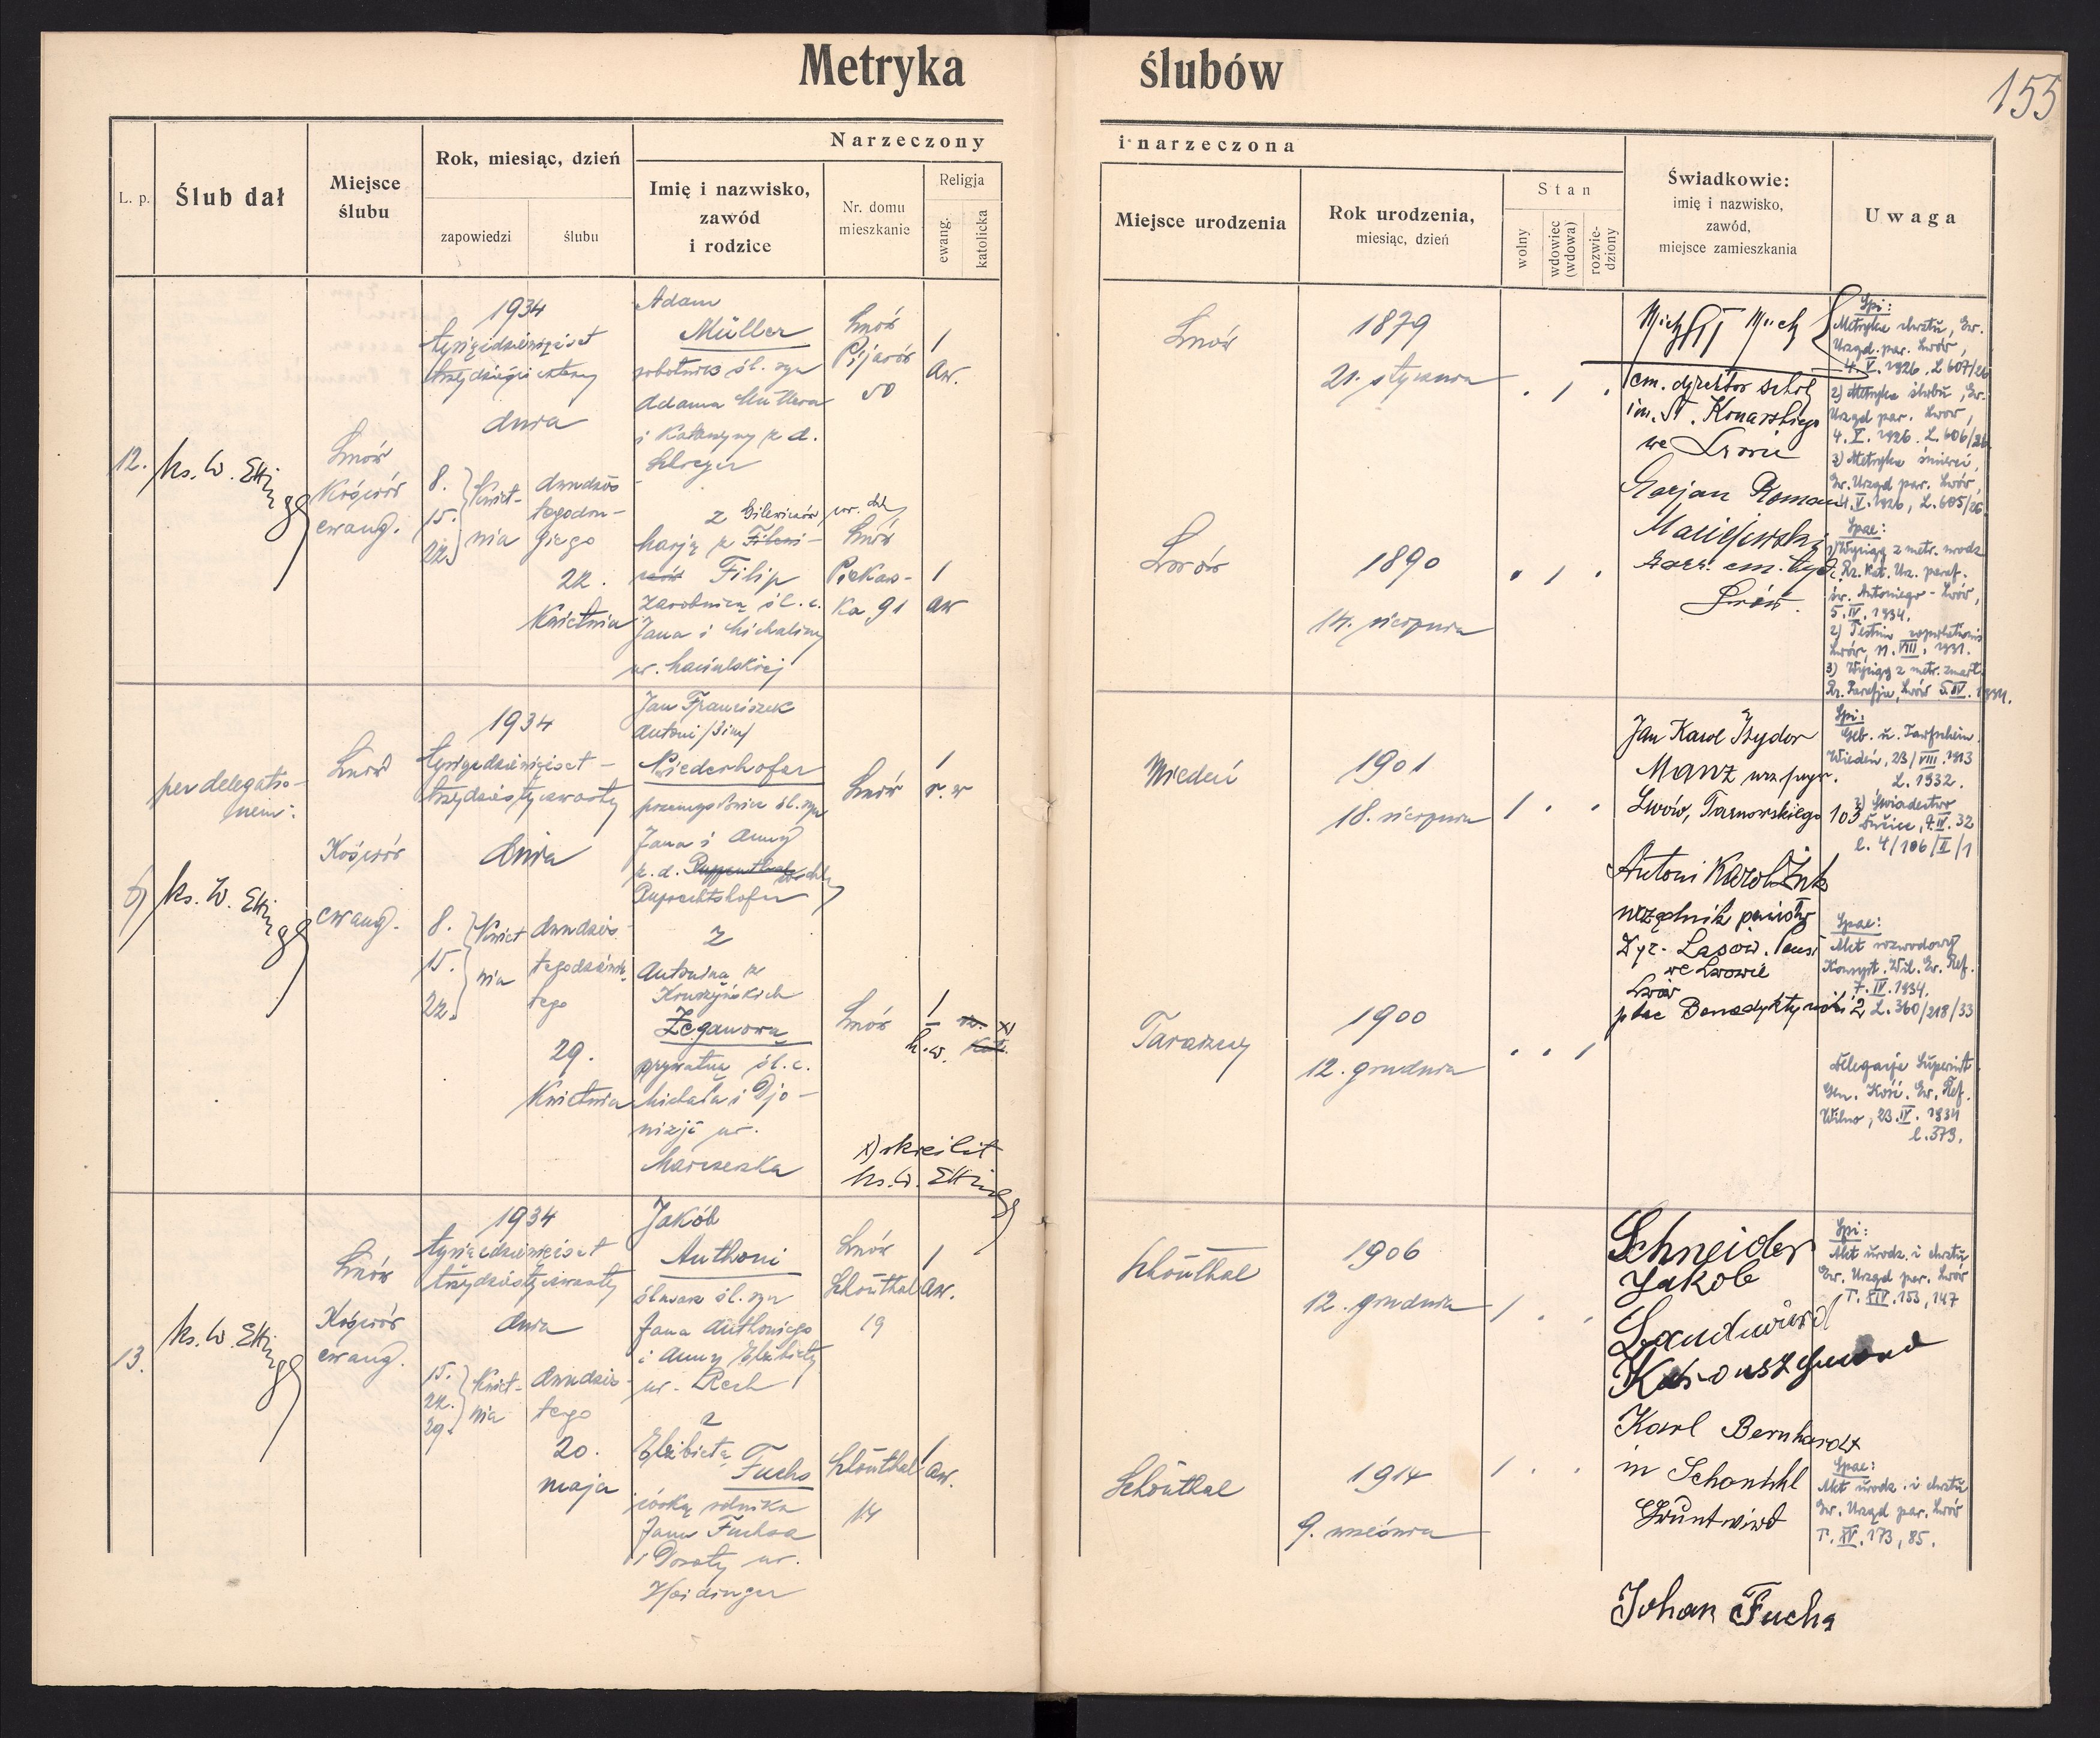 Metryka ślubów
155
L. p.
Ślub dał
Miejsce
ślubu
Rok, miesiąc, dzień
zapowiedzi
ślubu
Narzeczony
i narzeczona
Imię i nazwisko,
zawód
i rodzice
Nr. domu
mieszkanie
Religja
ewang.
katolicka
Miejsce urodzenia
Rok urodzenia,
miesiąc, dzień
Stan
wolny
wdowiec
(wdowa)
rozwie-
dziony
Świadkowie:
imię i nazwisko,
zawód,
miejsce zamieszkania
Uwaga
12.
ks. W. Ettinger
Lwów
Kościół
ewang.
1934
tysiącdziewięćset
trzydzieści cztery
dnia
8.
15.
22.
Kwiet-
nia
dwudzies
tegodru-
giego
22.
Kwietnia
Adam
Müller
robotnik śl. syn
Adama Müllera
i Katarzyny z d.
z Gilewiczów
Marją z
Filip
zarobnicą śl. c.
Jana i Michaliny
ur.
Lwów
Pijarów
50
1
aw.
Lwów
Piekar-
ka 91
1
aw
Lwów
1879
21. stycznia
Lwów
1890
14. sierpnia
em. dyrektor szkoły
im. St. Konarskiego
we Lwowie
Marjan Roman
Maciejewski
Lwów.
Spi:
Metryka chrztu, Ew.
Urząd par. Lwów,
4. V. 1926. L 607/26
2) Metryka ślubu, Ew.
Urząd par. Lwów,
4. V. 1926. L. 606/26
3) Metryka śmierci,
Ew. Urząd par. Lwów,
4. V. 1926, L. 605/26
Spae:
1) Wyciąg z metr. urodz.
Rz. Kat. Urz. paraf.
św. Antoniego - Lwów,
5. IV. 1934.
2) Testim.
Lwów, 11. VIII. 1931.
3) Wyciąg z metr. zmarł.
Rz. Parafja, Lwów 5. IV. 1934.
6)
per delegatio-
nem:
ks. W. Ettinger
Lwów
Kościół
ewang.
1934
tysiącdziewięćset-
trzydziestyczwarty
dnia
8.
15.
22.
Kwiet
nia
dwudzies-
tegodziewią-
tego
29.
Kwietnia
Jan Franciszek
Antoni
Niederhofer
przemysłowiec śl. syn
Jana i Anny
z. d.
Ruprechtshofer
z
Antoniną z
Kruszyńskich
Żeganową
prywatną śl. c.
Michała i Djo-
nizji ur.
Lwów
1
r. w
Lwów
1
h. w.
x) skreślił
ks. W. Ettinger
Wiedeń
1901
18. sierpnia
1900
12. grudnia
Jan Karol Izydor
Manz urz. pryw.
Lwów, Tarnowskiego 103
Antoni Karol Żuk
urzędnik państw.
Dyr. Lasów. Państ
we Lwowie
Lwów
plac Benedyktyński 2
Spi:
Geb. u. Taufschein
Wiedeń, 23/VIII. 1913
L. 1932.
2) Świadectwo
9. IV. 32
l. 4/106/II/1
Spae:
Akt rozwodowy
Konsyst. Wil. Ew. Ref.
7. IV. 1934.
L. 360/218/33
Delegacja Superint.
Gen. Kość. Ew. Ref.
Wilno, 23. IV. 1934
l. 373.
13.
ks. W. Ettinger
Lwów
Kościół
ewang.
1934
tysiącdziewięćset
trzydziestyczwarty
dnia
15.
22.
29.
Kwiet-
nia
dwudzies-
tego
20.
maja
Jakób
Anthoni
ślusarz śl. syn
Jana Anthoniego
i Anny Elżbiety
ur. Rech
z
Elżbietą
Fuchs
córką rolnika
Jana Fuchsa
i Doroty ur.
Heidinger
Lwów
Schönthal
19
1
aw.
Schönthal
14
1
aw.
Schönthal
1906
12. grudnia
Schönthal
1914
9. września
Schneider
Jakob
Landwird
Karl Bernhardt
in Schönthl
Gruntwirt
Johan Fuchs
Spi:
Akt urodz. i chrztu
Ew. Urząd par. Lwów
T. XIV. 153, 147
Spae:
Akt urodz. i chrztu
Ew. Urząd par. Lwów
T. XV. 173, 85.